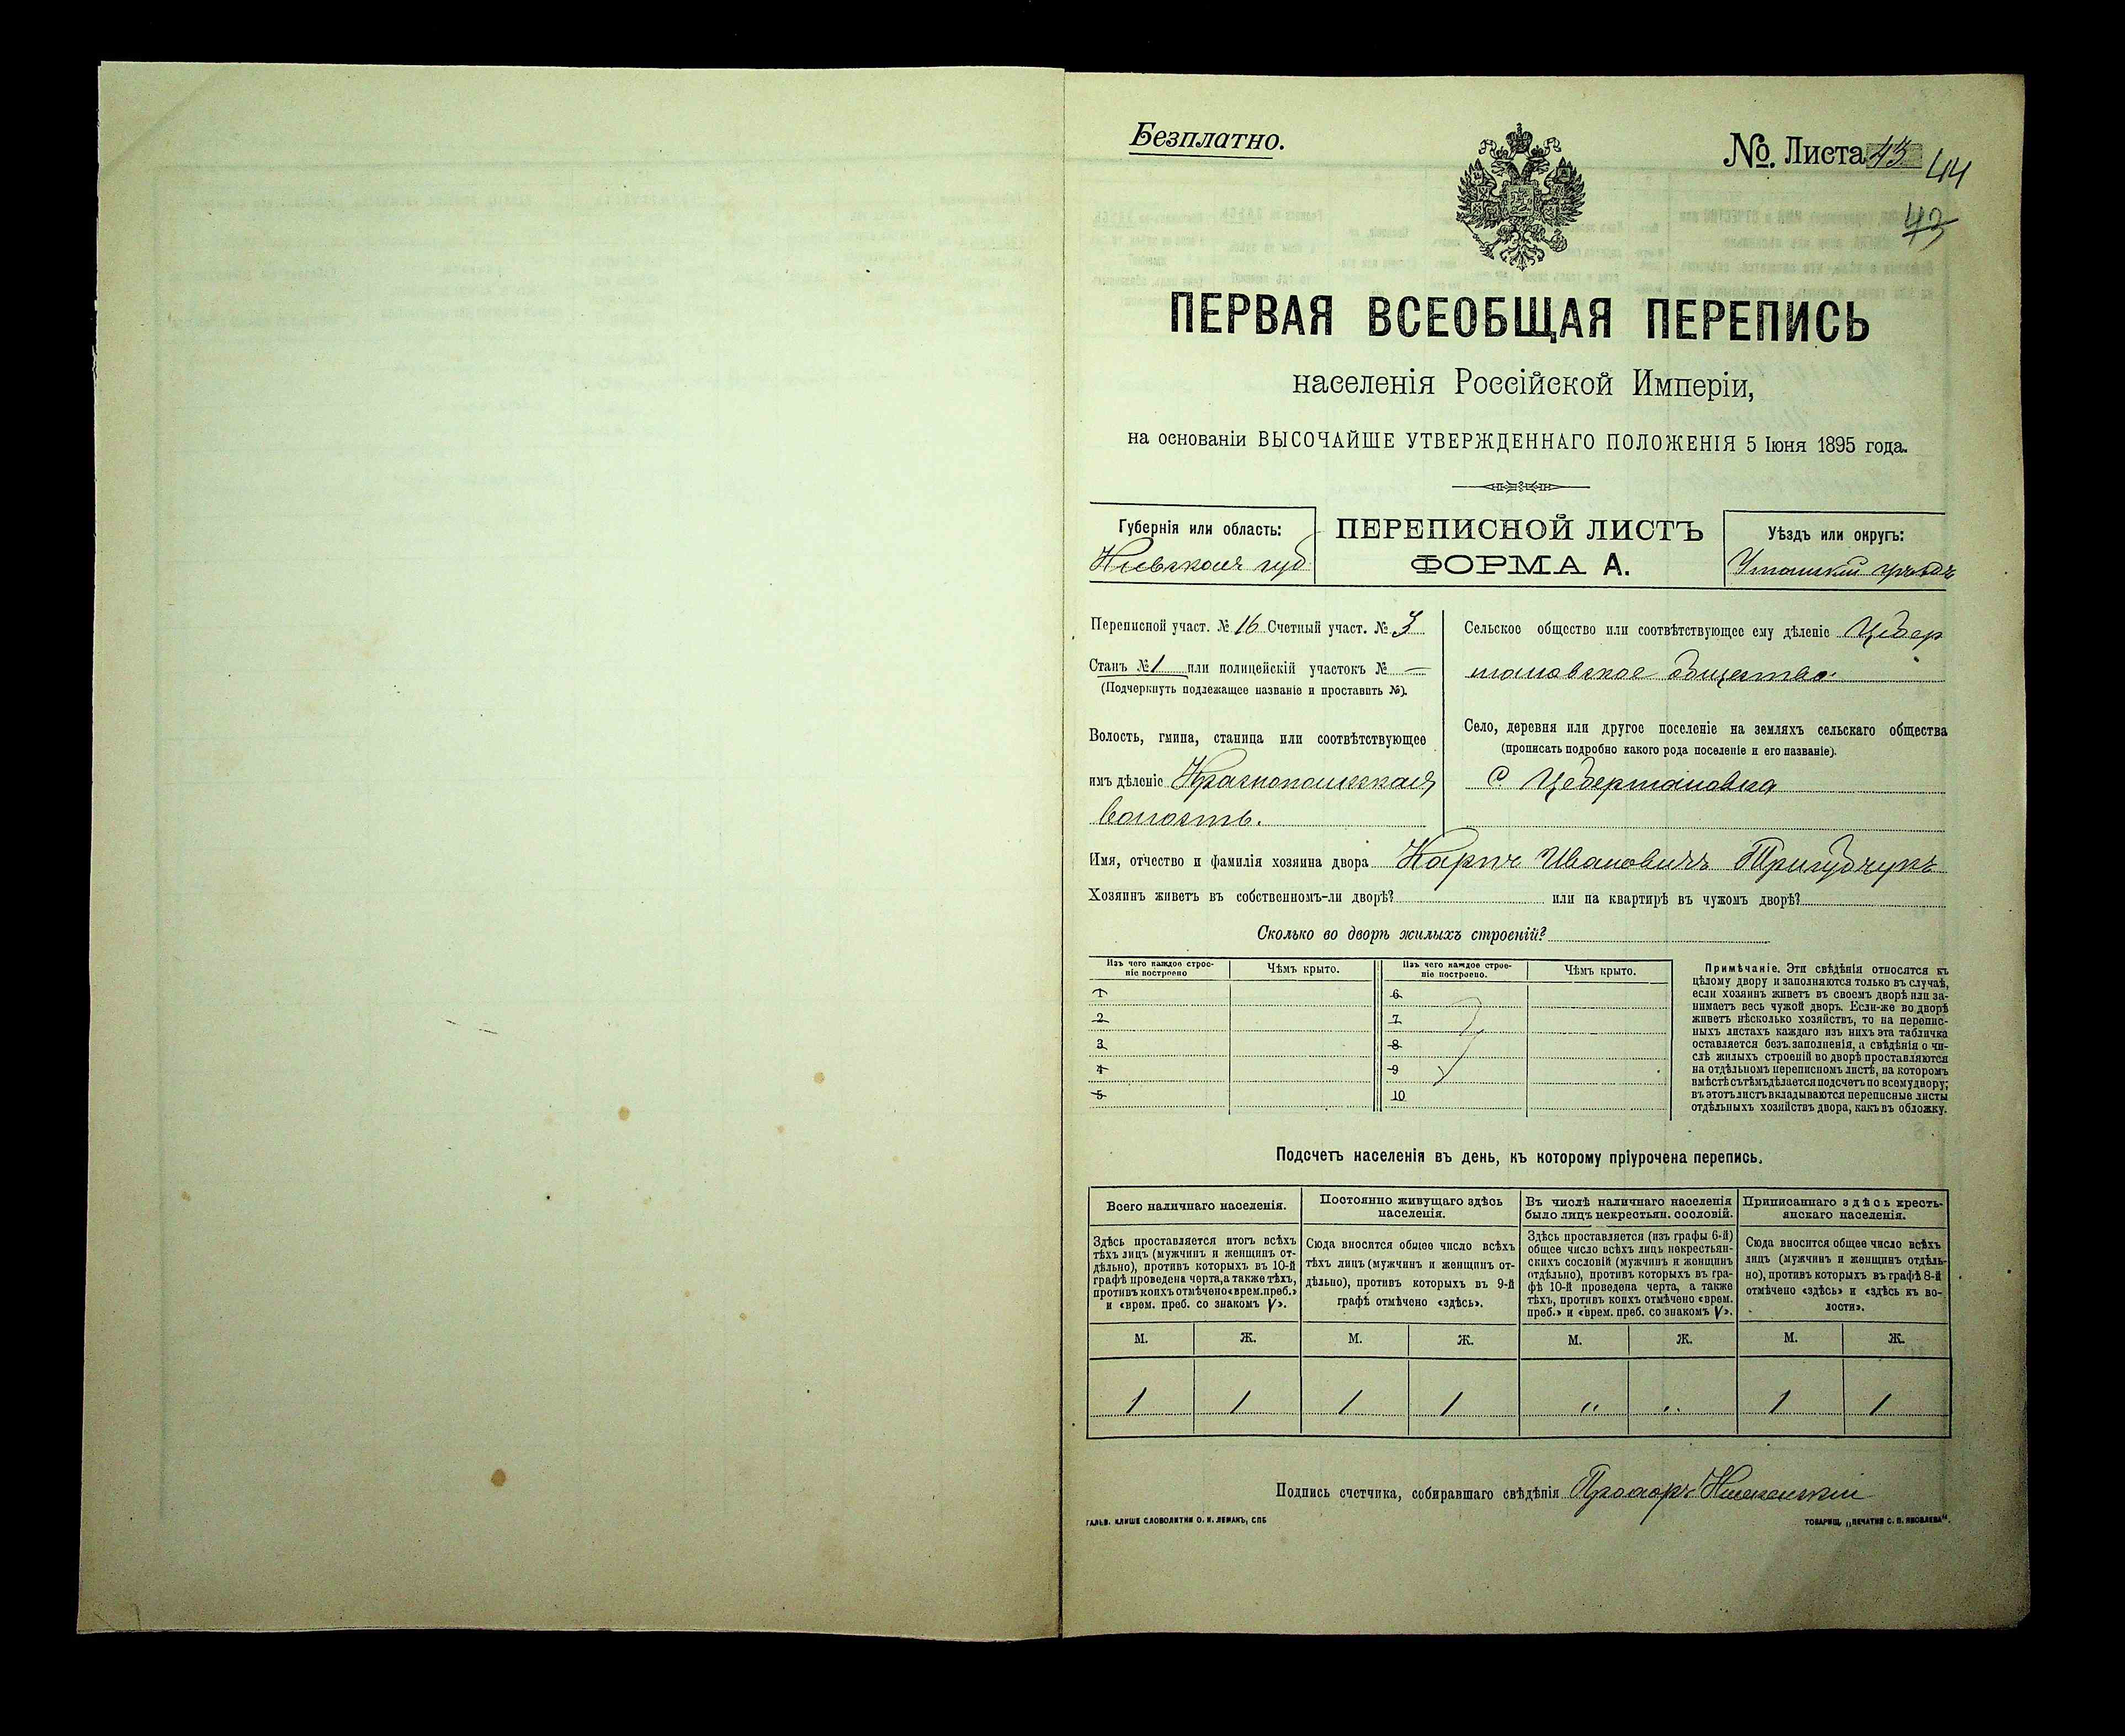 Безплатно.
№. Листа 43 44
43
ПЕРВАЯ ВСЕОБЩАЯ ПЕРЕПИСЬ
населенія Россійской Имперіи,
на основаніи ВЫСОЧАЙШЕ УТВЕРЖДЕННАГО ПОЛОЖЕНІЯ 5 Іюня 1895 года.
Губернія или область:
Кіевская губ
ПЕРЕПИСНОЙ ЛИСТЪ
ФОРМА А.
Уѣздъ или округъ:
Уманскій уѣздъ
Переписной участ. № 16 Счетный участ. № 3
Станъ № 1 или полицейскій участокъ № —
(Подчеркнуть подлежащее названіе и проставить №).
Волость, гмина, станица или соотвѣтствующее
имъ дѣленіе Краснопольская
волость.
Сельское общество или соотвѣтствующее ему дѣленіе Цебер
мановское общество.
Село, деревня или другое поселеніе на земляхъ сельскаго общества
(прописать подробно какого рода поселеніе и его названіе).
С. Цебермановка
Имя, отчество и фамилія хозяина двора Карпъ Ивановичъ
Хозяинъ живетъ въ собственномъ-ли дворѣ? или на квартирѣ въ чужомъ дворѣ?
Сколько во дворѣ жилыхъ строеній?
Изъ чего каждое строе-
ніе построено
Чѣмъ крыто.
Изъ чего каждое строе-
ніе построено.
Чѣмъ крыто.
1
2
3
4
5
6
7
8
9
10
Примѣчаніе. Эти свѣдѣнія относятся къ
цѣлому двору и заполняются только въ случаѣ,
если хозяинъ живетъ въ своемъ дворѣ или за-
нимаетъ весь чужой дворъ. Если-же во дворѣ
живетъ нѣсколько хозяйствъ, то на перепис-
ныхъ листахъ каждаго изъ нихъ эта табличка
оставляется безъ заполненія, а свѣдѣнія о чи-
слѣ жилыхъ строеній во дворѣ проставляются
на отдѣльномъ переписномъ листѣ, на которомъ
вмѣстѣ съ тѣмъ дѣлается подсчетъ по всему двору;
въ этотъ листъ вкладываются переписные листы
отдѣльныхъ хозяйствъ двора, какъ въ обложку.
Подсчетъ населенія въ день, къ которому пріурочена перепись.
Всего наличнаго населенія.
Здѣсь проставляется итогъ всѣхъ
тѣхъ лицъ (мужчинъ и женщинъ от-
дѣльно), противъ которыхъ въ 10-й
графѣ проведена черта, а также тѣхъ,
противъ коихъ отмѣчено «врем. преб.»
и «врем. преб. со знакомъ V».
Постоянно живущаго здѣсь
населенія.
Сюда вносится общее число всѣхъ
тѣхъ лицъ (мужчинъ и женщинъ от-
дѣльно), противъ которыхъ въ 9-й
графѣ отмѣчено «здѣсь».
Въ числѣ наличнаго населенія
было лицъ некрестьян. сословій.
Здѣсь проставляется (изъ графы 6-й)
общее число всѣхъ лицъ некрестьян-
скихъ сословій (мужчинъ и женщинъ
отдѣльно), противъ которыхъ въ гра-
фѣ 10-й проведена черта, а также
тѣхъ, противъ коихъ отмѣчено «врем.
преб.» и «врем. преб. со знакомъ V».
Приписаннаго здѣсь кресть-
янскаго населенія.
Сюда вносится общее число всѣхъ
лицъ (мужчинъ и женщинъ отдѣль-
но), противъ которыхъ въ графѣ 8-й
отмѣчено «здѣсь» и «здѣсь къ во-
лости».
М. Ж. М. Ж. М. Ж. М. Ж.
1 1 1 1 " " 1 1
Подпись счетчика, собиравшаго свѣдѣнія Прохоръ
ГАЛЬВ. КЛИШЕ СЛОВОЛИТНИ О. И. ЛЕМАНЪ, СПБ
ТОВАРИЩ. „ПЕЧАТНЯ С. П. ЯКОВЛЕВА".